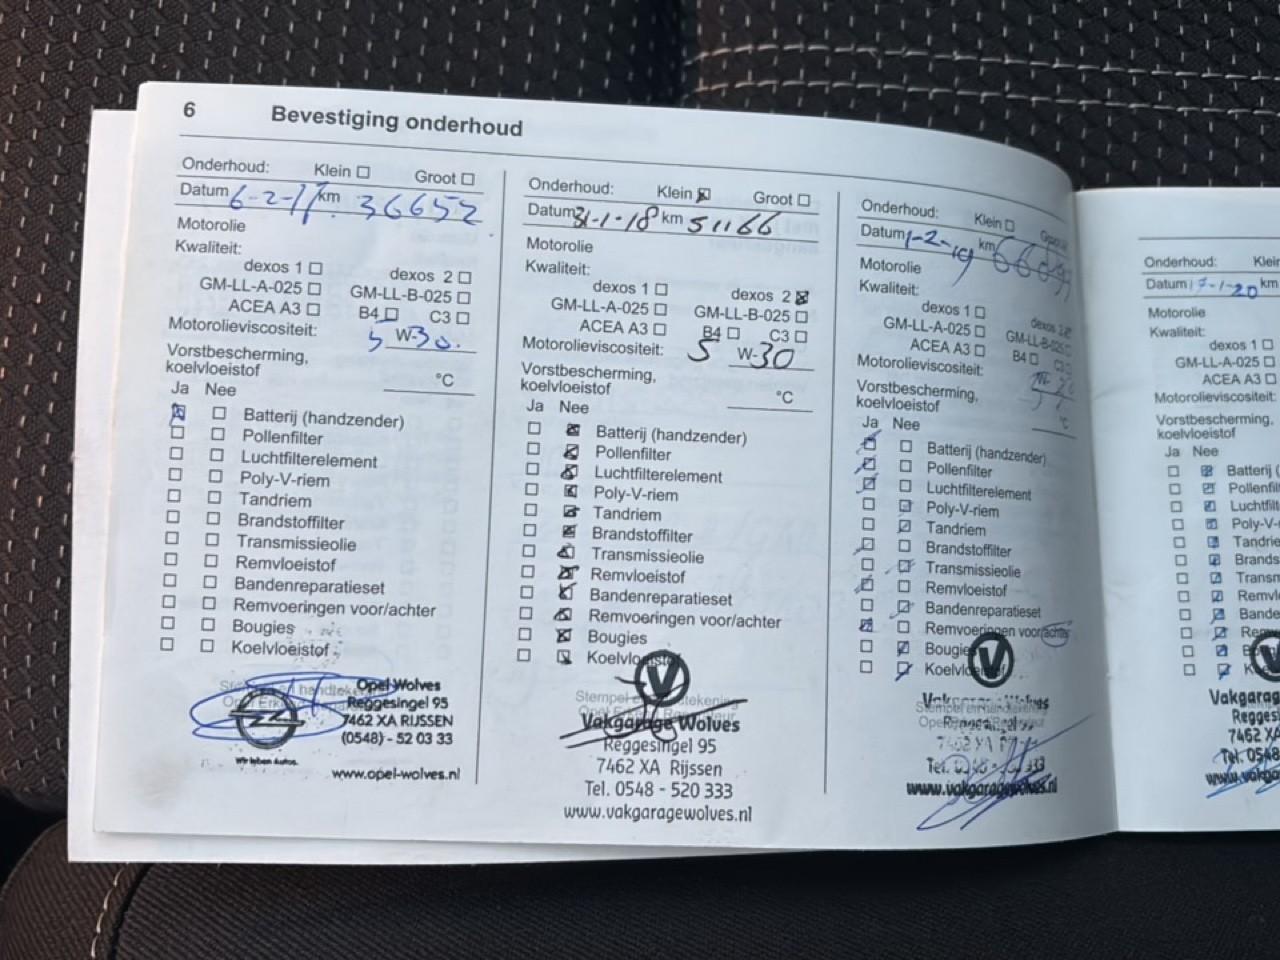 6 Bevestiging onderhoud
Onderhoud: Klein Groot
Datum 6-2-17 km 36652
Motorolie
Kwaliteit:
dexos 1 dexos 2
GM-LL-A-025 GM-LL-B-025
ACEA A3 B4 C3
Motorolieviscositeit: 5 W-30
Vorstbescherming,
koelvloeistof °C
Ja Nee
Batterij (handzender)
Pollenfilter
Luchtfilterelement
Poly-V-riem
Tandriem
Brandstoffilter
Transmissieolie
Remvloeistof
Bandenreparatieset
Remvoeringen voor/achter
Bougies
Koelvloeistof
Opel Wolves
Reggesingel 95
7462 XA RIJSSEN
(0548) - 52 03 33
Wir leben Autos.
www.opel-wolves.nl
Onderhoud: Klein Groot
Datum 31-1-18 km 51166
Motorolie
Kwaliteit:
dexos 1 dexos 2
GM-LL-A-025 GM-LL-B-025
ACEA A3 B4 C3
Motorolieviscositeit: 5 W-30
Vorstbescherming,
koelvloeistof °C
Ja Nee
Batterij (handzender)
Pollenfilter
Luchtfilterelement
Poly-V-riem
Tandriem
Brandstoffilter
Transmissieolie
Remvloeistof
Bandenreparatieset
Remvoeringen voor/achter
Bougies
Koelvloeistof
Vakgarage Wolves
Reggesingel 95
7462 XA Rijssen
Tel. 0548 - 520 333
www.vakgaragewolves.nl
Onderhoud: Klein
Datum 1-2-19 km
Motorolie
Kwaliteit:
dexos 1 dexos 2
GM-LL-A-025 GM-LL-B-025
ACEA A3 B4 C3
Motorolieviscositeit:
Vorstbescherming,
koelvloeistof °C
Ja Nee
Batterij (handzender)
Pollenfilter
Luchtfilterelement
Poly-V-riem
Tandriem
Brandstoffilter
Transmissieolie
Remvloeistof
Bandenreparatieset
Remvoeringen voor/achter
Bougies
Koelvloeistof
www.vakgaragewolves.nl
Onderhoud: Klein
Datum 17-1-20 km
Motorolie
Kwaliteit:
dexos 1
GM-LL-A-025
ACEA A3
Motorolieviscositeit:
Vorstbescherming,
koelvloeistof
Ja Nee
Batterij (
Pollenfil
Luchtfilt
Poly-V-r
Tandrie
Brands
Transm
Remvl
Bande
Vakgarag
Reggesi
7462 XA
Tel. 0548